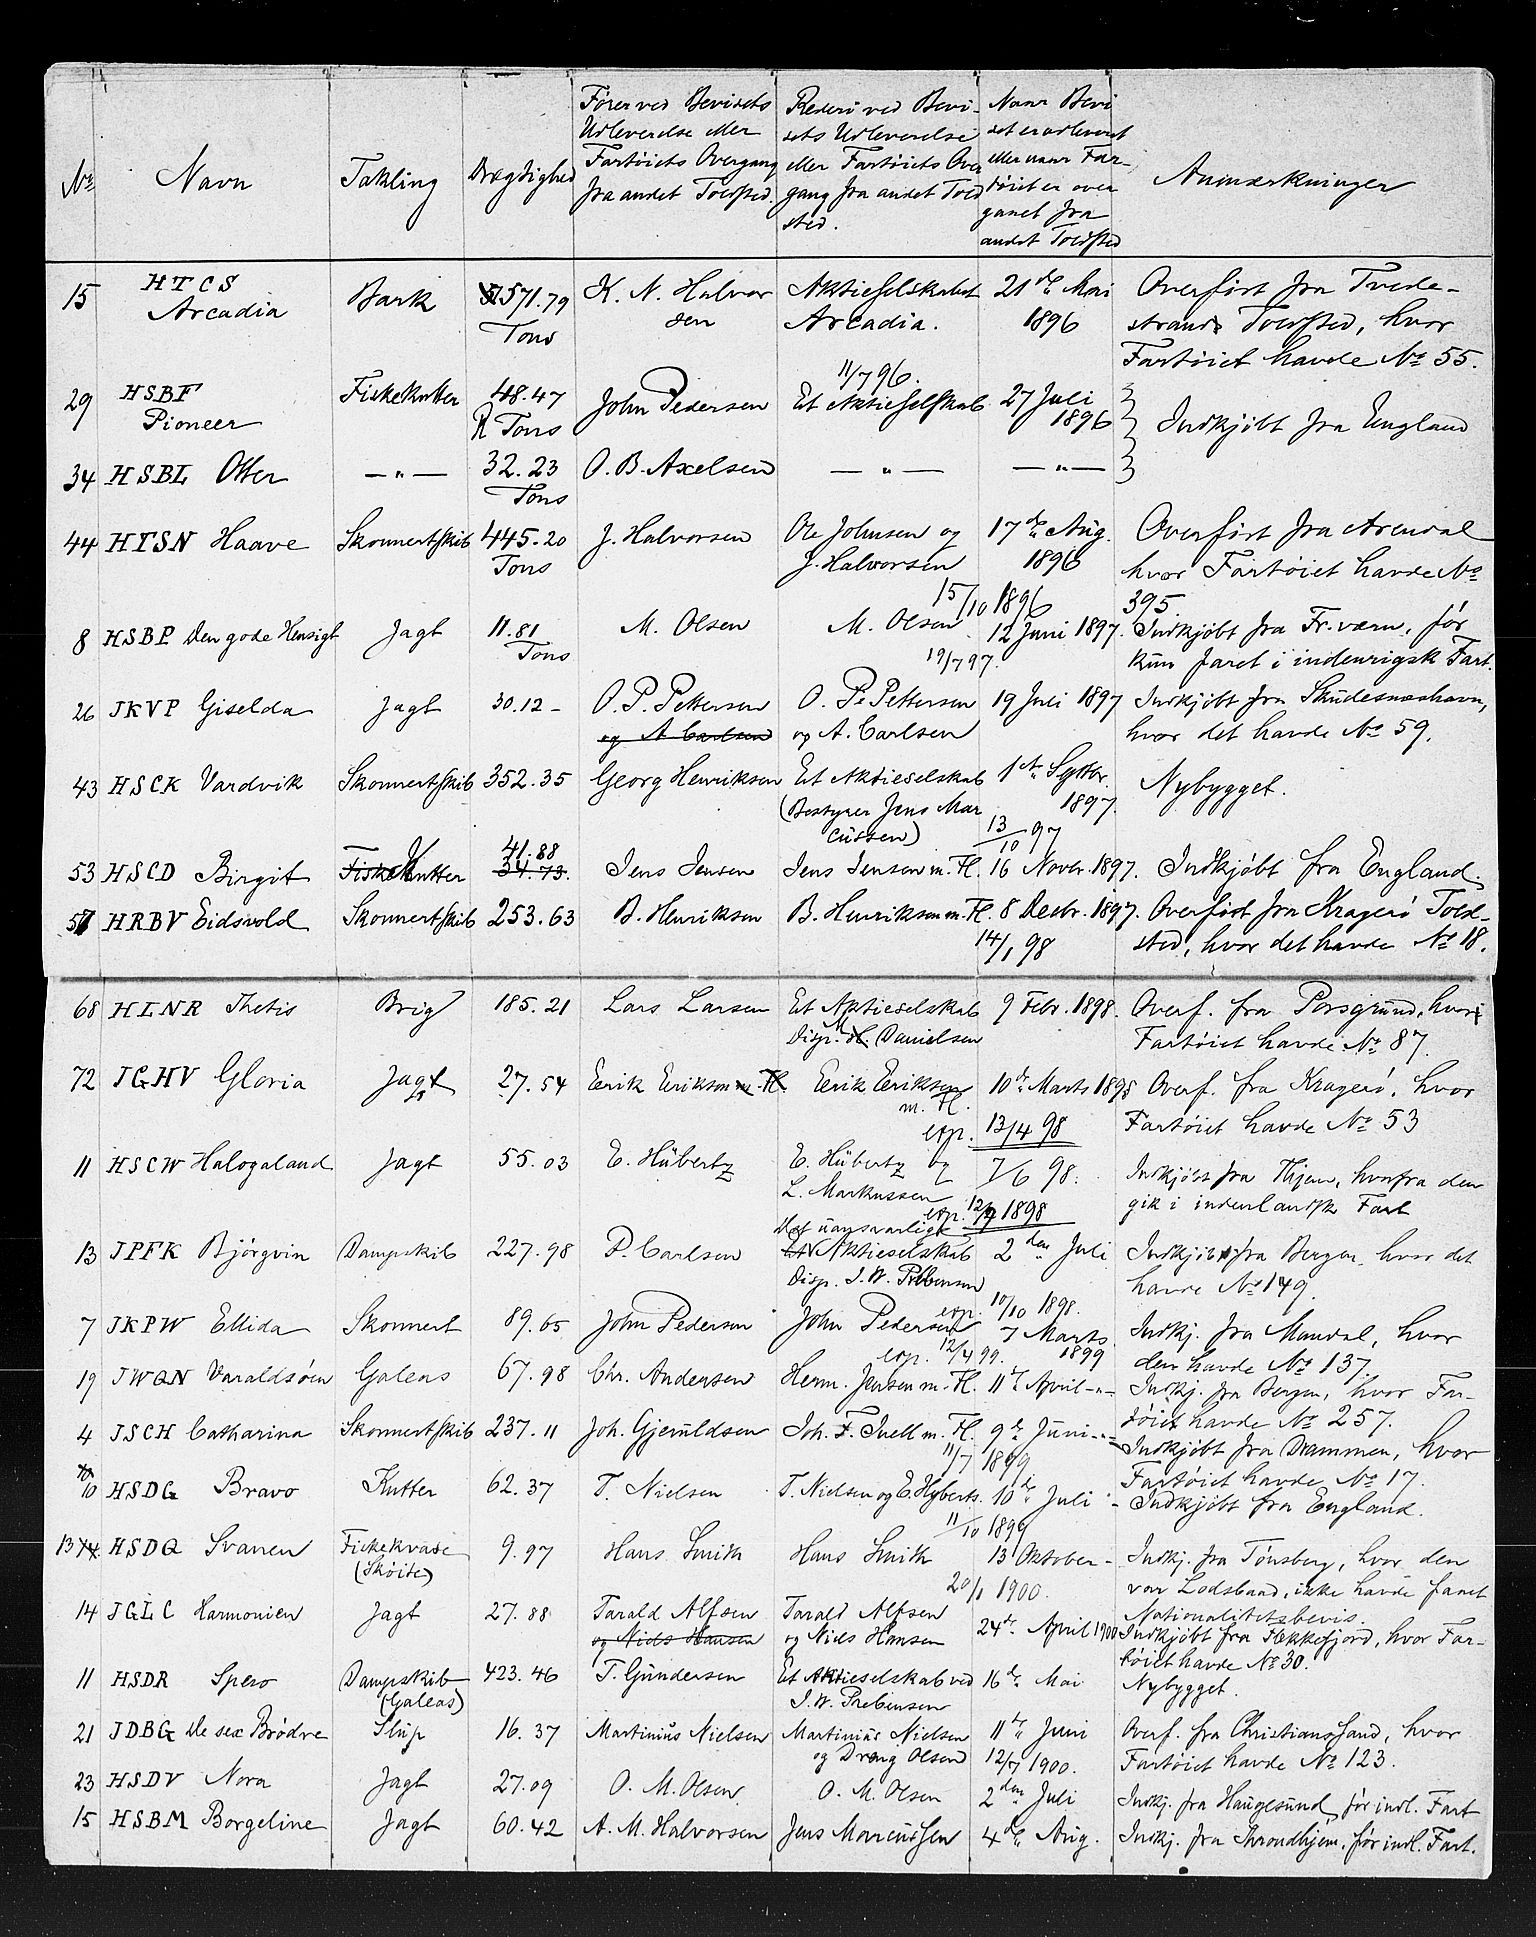 No
Navn
Takling
Drægtighed
Fører ved Bevisets
Udleverelse eller
Fartøiets Overgang
fra andet Toldsted.
Rederi ved Bevi-
sets Udleverelse
eller Fartøiets Over
gang fra andet Told
sted.
Naar Bevi
set er udleveret
eller naar Far-
tøiet er over
ganet fra
andet Toldsted
Anmærkninger
15 HTCS Bark 571.79 K. N. Halvor Aktieselskabet 21de Mai Overført fra Tvede-
Arcadia Tons sen Arcadia. 1896 strands Toldsted, hvor
Fartøiet havde No 55.
11/7 96.
29 HSBF Fiskekutter 48.47 John Pedersen Et Aktieselskab 27 Juli
Pioneer R Tons 1896 Indkjøbt fra England
34 HSBL Otter —"— 32.23 O. B. Axelsen —"— —"—
Tons
44 HTSN Haave Skonnertskib 445.20 J. Halvorsen Ole Johnsen og 17de Aug. Overført fra Arendal
Tons J. Halvorsen 1896 hvor Fartøiet havde No
15/10 1896 395.
8 HSBP Den gode Hensigt Jagt 11.81 M. Olsen M. Olsen 12 Juni 1897. Indkjøbt fra Fr.værn, før
Tons 19/7 97. kun faret i indenrigsk Fart.
26 JKVP Giselda Jagt 30.12 - O. P. Pettersen O. P. Pettersen 19 Juli 1897 Indkjøbt fra Skudesneshavn,
og A. Carlsen og A. Carlsen hvor det havde No 59.
43 HSCK Vardvik Skonnertskib 352.35 Georg Henriksen Et Aktieselskab 1ste Septbr. Nybygget.
(Bestyrer Jens Mar 1897.
cussen) 13/10 97
41.88
53 HSCD Birgit Fiskekutter 34.73. Jens Jensen Jens Jensen m. Fl. 16 Novbr. 1897. Indkjøbt fra England.
57 HRBV Eidsvold Skonnertskib 253.63 B. Henriksen B. Henriksen m. Fl. 8 Decbr. 1897. Overført fra Kragerø Told-
14/1 98 sted, hvor det havde No 18.
68 HLNR Thetis Brig 185.21 Lars Larsen Et Aktieselskab 9 Febr. 1898. Overf. fra Porsgrund, hvor
Disp. M. Danielsen Fartøiet havde No 87.
72 JGHV Gloria Jagt 27.54 Eerik Eeriksen m. Fl. Eerik Eeriksen 10de Marts 1898 Overf. fra Kragerø, hvor
m. Fl. Fartøiet havde No 53
exp. 13/4 98
11 HSCW Halogaland Jagt 55.03 E. Hübertz E. Hübertz og 7/6 98. Indkjøbt fra Thjem, hvorfra den
L. Markussen gik i indenlandsk Fart
exp. 12/7 1898
Det uansvarlige
13 JPFK Bjørgvin Dampskib 227.98 P. Carlsen Aktieselskab 2den Juli Indkjøbt fra Bergen, hvor det
Disp. J. W. Prebensen havde No 149.
exp. 10/10 1898.
7 JKPW Ellida Skonnert 89.65 John Pedersen John Pedersen 7 Marts Indkj. fra Mandal, hvor
exp. 12/4 99. 1899 den havde No 137.
19 JWQN Varaldsøen Galeas 67.98 Chr. Andersen Herm. Jensen m. Fl. 11te April -"- Indkj. fra Bergen, hvor Far-
tøiet havde No 257.
4 JSCH Catharina Skonnertskib 237.11 Joh. Gjeruldsen Joh. F. Tuell m. Fl. 9de Juni -"- Indkjøbt fra Drammen, hvor
11/7 1899 Fartøiet havde No 17.
10 HSDG Bravo Kutter 62.37 T. Nielsen T. Nielsen og E. Hyberts. 10de Juli - Indkjøbt fra England.
11/10 1899
13 14 HSDQ Svanen Fiskekvase 9.97 Hans Smith Hans Smith 13 Oktober - Indkj. fra Tønsberg, hvor den
(Skøite) 20/1 1900. var Lodsbaad, ikke havde faaet
Nationalitetsbevis.
14 JGLC Harmonien Jagt 27.88 Tarald Alfsen Tarald Alfsen 24de April 1900 Indkjøbt fra Flekkefjord, hvor Far-
og Niels Hansen og Niels Hansen tøiet havde No 30.
11 HSDR Spero Dampskib 423.46 T. Gundersen Et Aktieselskab ved 16de Mai Nybygget.
(Galeas) J. W. Prebensen
21 JDBG De sex Brødre Slup 16.37 Martinius Nielsen Martinius Nielsen 11te Juni Overf. fra Christianssand, hvor
og Dreng Olsen 12/7 1900. Fartøiet havde No 123.
23 HSDV Nora Jagt 27.09 O. M. Olsen O. M. Olsen 2den Juli Indkj. fra Haugesund, før indl. Fart
15 HSBM Borgeline Jagt 60.42 A. M. Halvorsen Jens Marcussen 4de Aug. Indkj. fra Throndhjem, før indl. Fart.